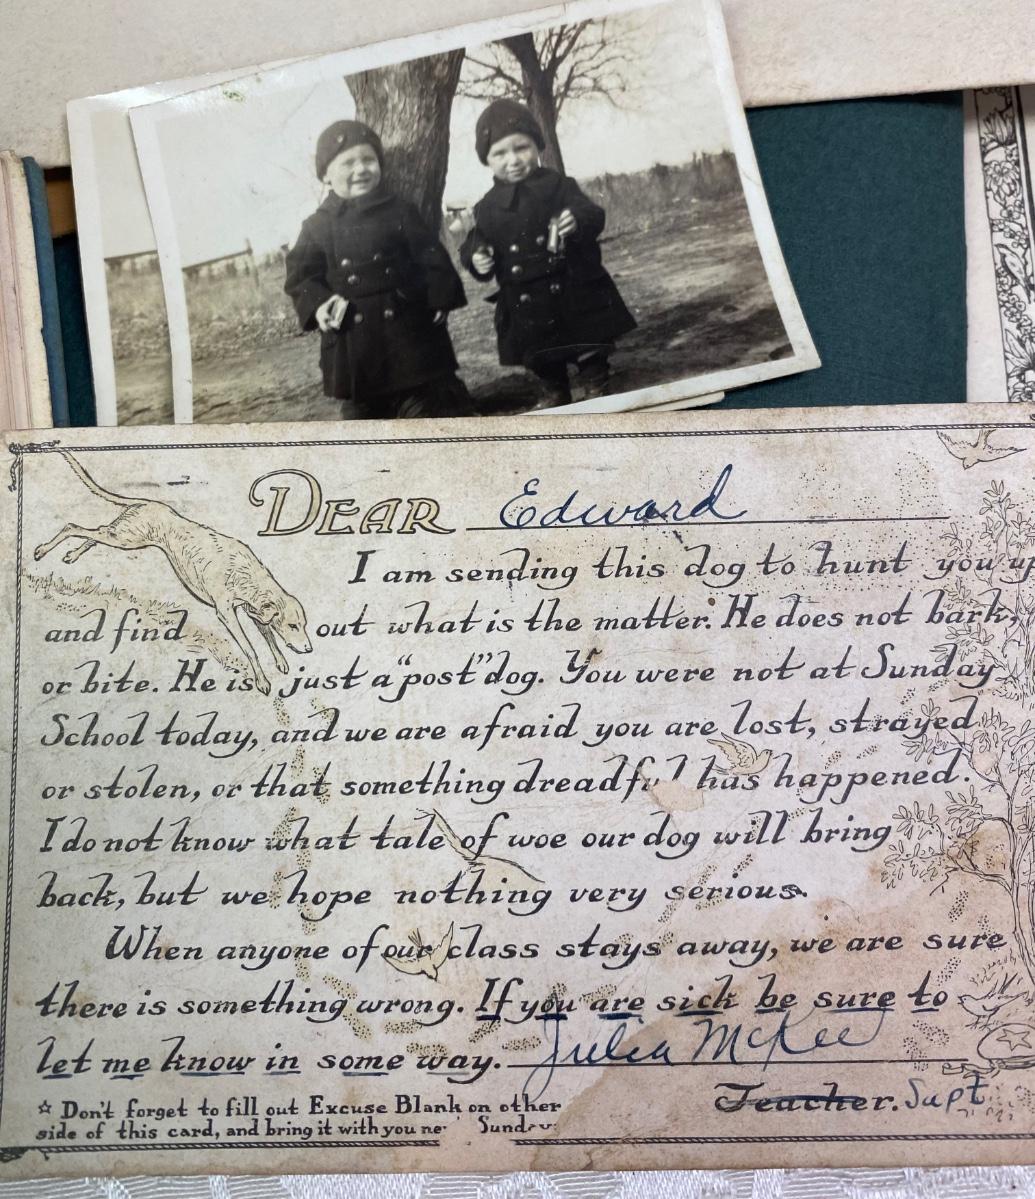 DEAR Edward
I am sending this dog to hunt you up
and find out what is the matter. He does not bark,
or bite. He is just a "post" dog. You were not at Sunday
School today, and we are afraid you are lost, strayed
or stolen, or that something dreadful has happened.
I do not know what tale of woe our dog will bring
back, but we hope nothing very serious.
When anyone of our class stays away, we are sure
there is something wrong. If you are sick be sure to
let me know in some way. Julia McKee
Teacher. Supt
☆ Don't forget to fill out Excuse Blank on other
side of this card, and bring it with you Sunday